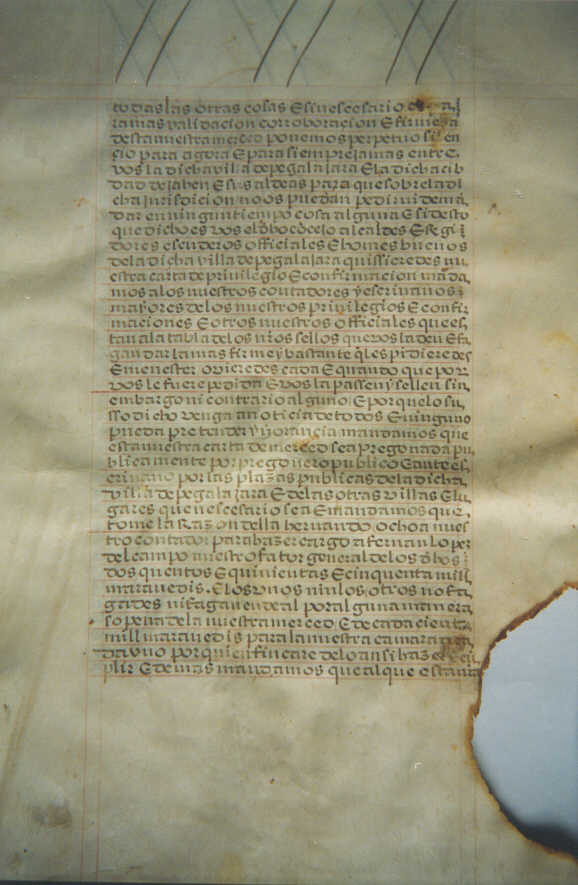 todas las otras cosas E si nescesario
ramas validacion corroboracion E firmeza
desta nuestra merced ponemos perpetuo silen
cio para agora E para siempre jamas entre
vos la dicha villa de pegalajara E la dicha cib
dad de jahen E sus aldeas para que sobre la di
cha Jurisdicion no os puedan pedir ni demā
dar en ningun tiempo cosa alguna E si desto
que dicho es vos el dho concejo alcaldes E Regi
dores escuderos officiales E homes buenos
dela dicha villa de pegalajara quissieredes nu
estra carta de privilegio E confirmacion manda
mos alos nuestros contadores y escrivanos
mayores delos nuestros privilegios E confir
maciones E otros nuestros officiales que es
tan ala tabla delos nros sellos que vos la den E fa
gan dar la mas firme y bastante q les pidieredes
E menester ovieredes cada E quando que por
vos le fuere pedida E vos la passen y sellen sin
embargo ni contrario alguno E por quelo su
sso dicho venga a noticia de todos E ninguno
pueda pretender ynorancia mandamos que
esta nuestra carta de merced sea pregonada pu
blicamente por pregonero publico E ante es
crivano por las plazas publicas dela dicha
villa de pegalajara E delas otras villas E lu
gares que nescesario sea E mandamos que
tome la Razon della hernando ochoa nues
tro contador para hazer cargo a fernan loper
del campo nuestro fator general delos dhos
dos quentos E quinientas E cinquenta mill
maravedis. E los vnos nin los otros no fa
gades ni fagan ende al por alguna manera
so pena dela nuestra merced E de cada cient
mill maravedis para la nuestra camara
da vno por quien fincare delo ansi hazer E cu
plir E demas mandamos que al que esta nra